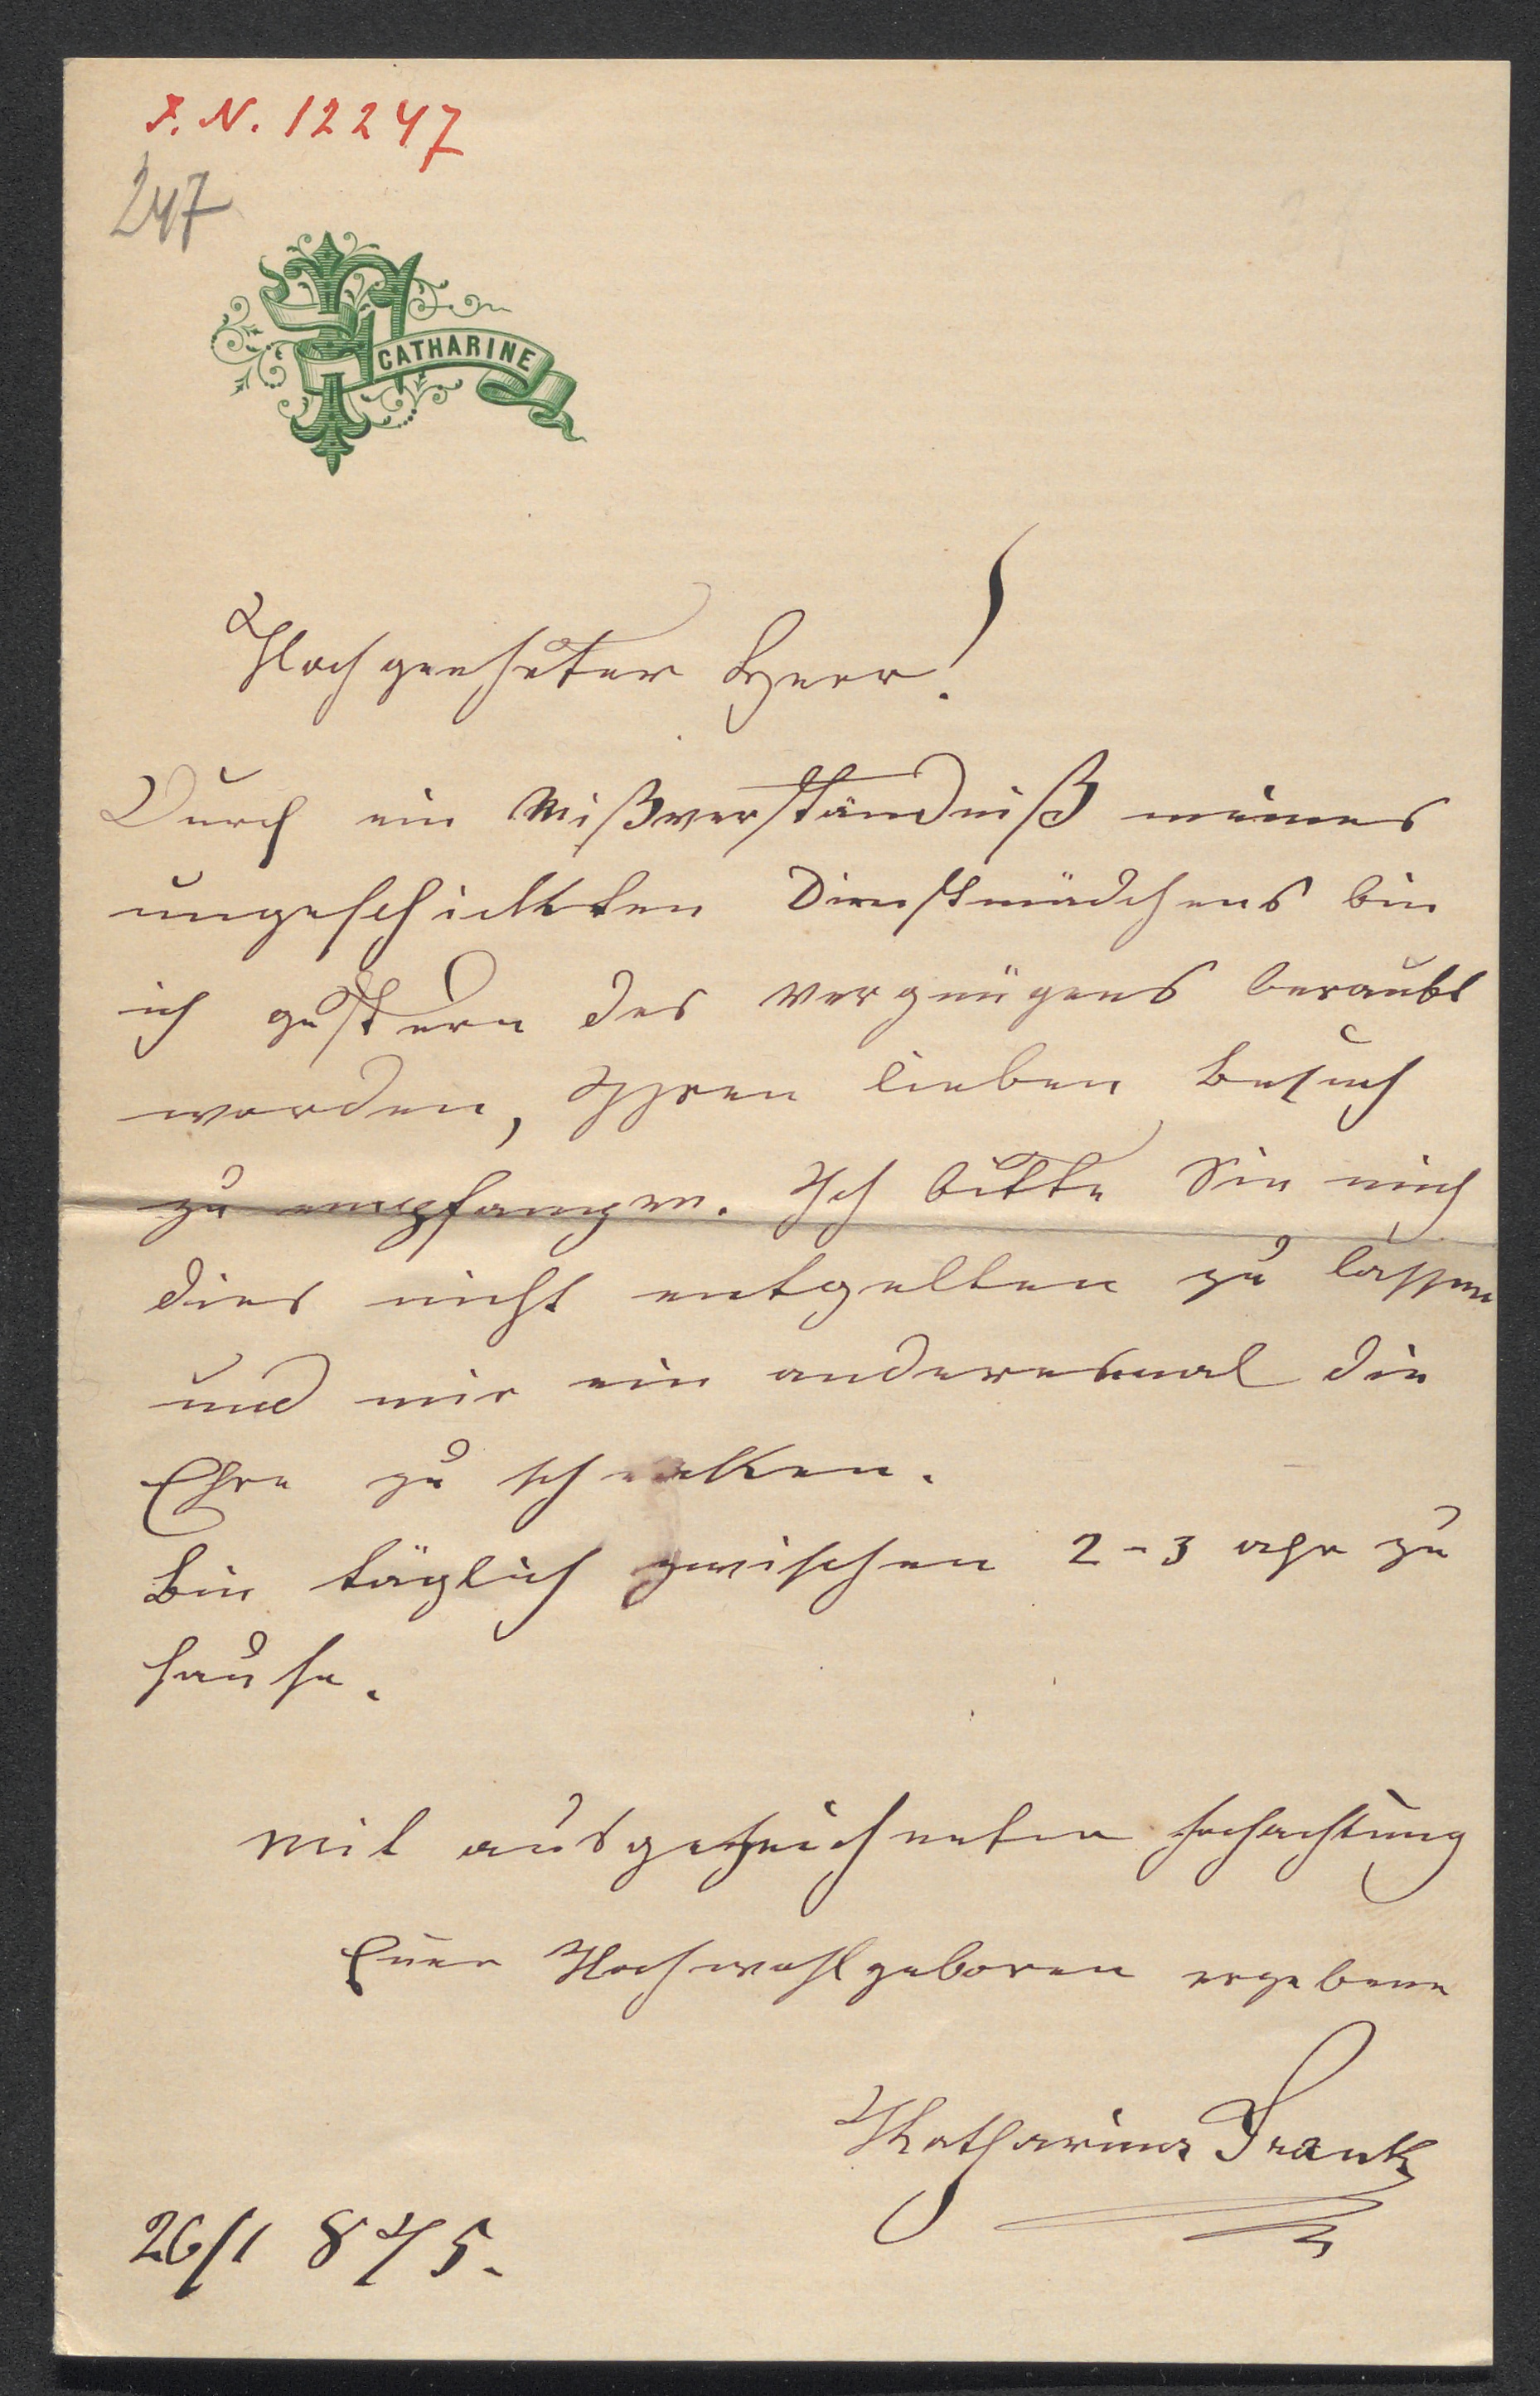 I. N. 12247
247
CATHARINE
Hochgeehrter Herr!
Durch ein Mißverständniß meines
ungeschickten Dienstmädchens bin
ich gestern des Vergnügens beraubt
worden, Ihren lieben Besuch
zu empfangen. Ich bitte Sie mich
dies nicht entgelten zu lassen
und mir ein anderesmal die
Ehre zu schenken.
Bin täglich zwischen 2-3 Uhr zu
Hause.
Mit ausgezeichneter Hochachtung
Euer Hochwohlgeboren ergebene
Katharina Frank
26/1 875.